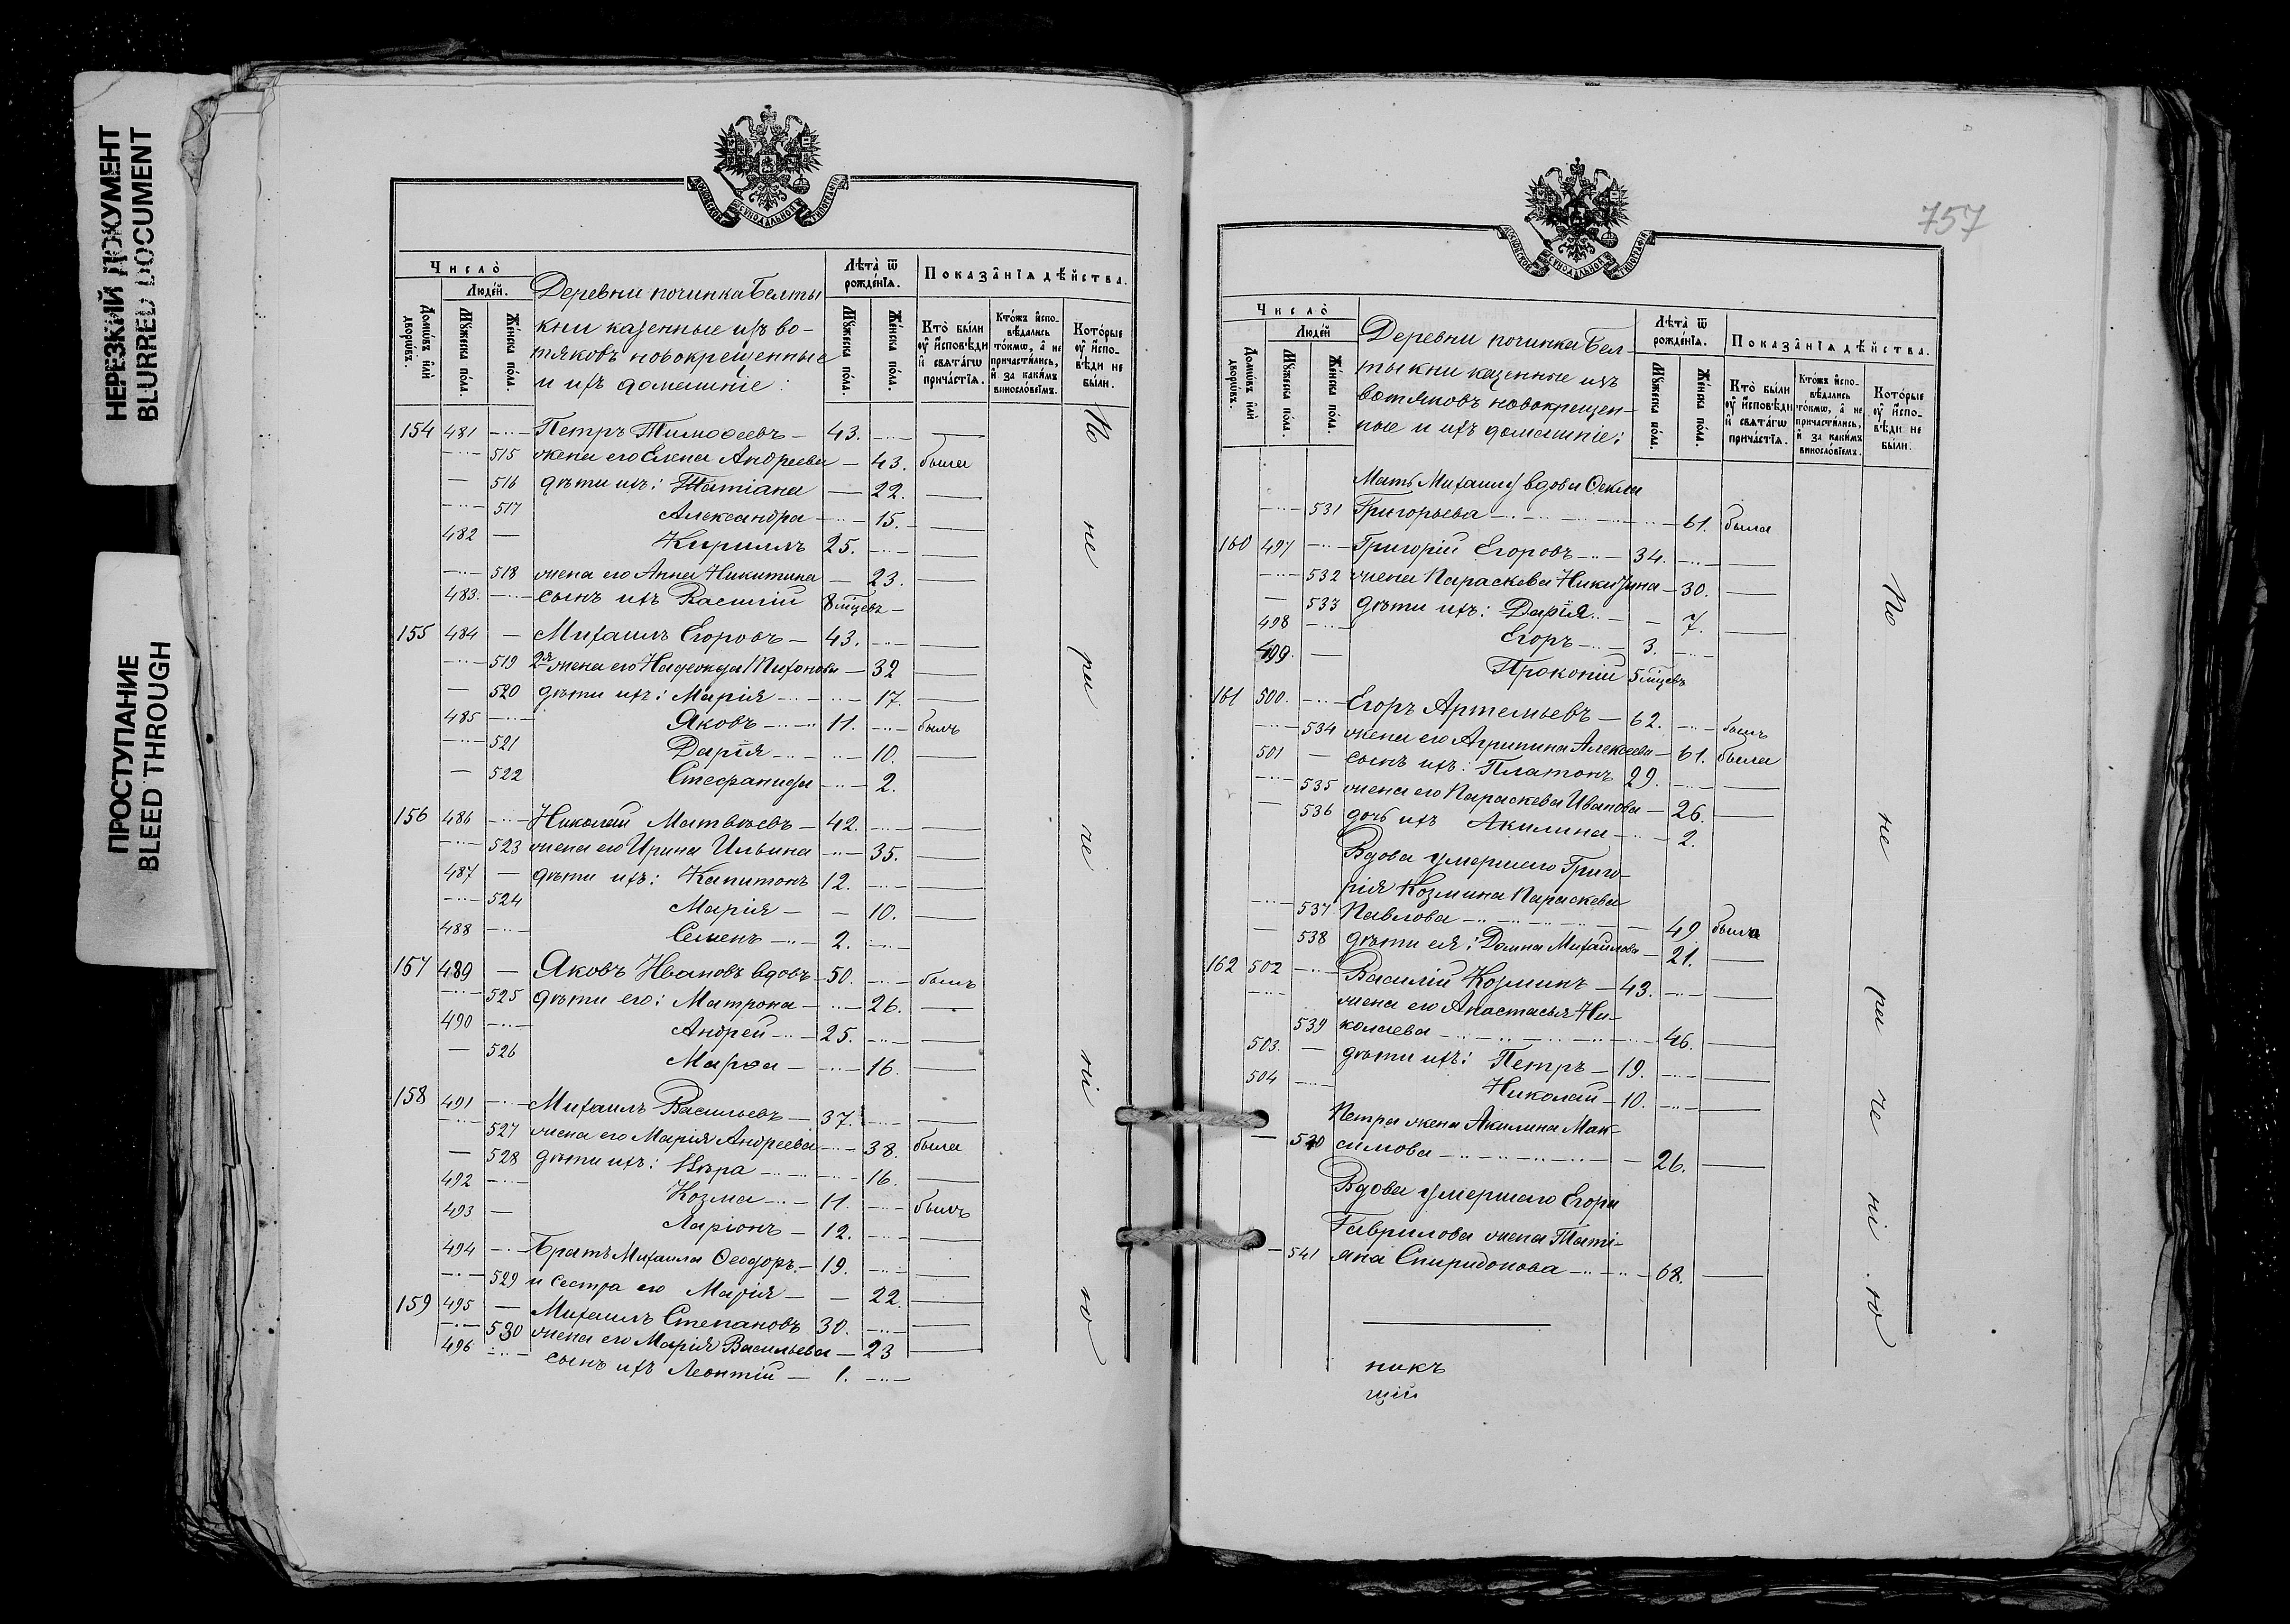 НЕРЕЗКИЙ ДОКУМЕНТ
BLURRED DOCUMENT
ПРОСТУПАНИЕ
BLEED THROUGH
МОСКОВСКОЙ СѴНОДАЛЬНОЙ ТИПОГРАФІИ
Число̀
Людéй.
Домѡ́въ и҆лѝ дворѡ́въ.
Мꙋ́жеска по́ла.
Же́нска по́ла.
Деревни починка Белты
кни казенные изъ во-
тяковъ новокрещенные
и ихъ домашніе:
Лѣ́та ѿ рожде́нїѧ.
Мꙋ́жеска по́ла.
Же́нска по́ла.
Показа̑нїѧ дѣ́йства.
Кто̀ бы́ли ᲂу҆ и҆сповѣ́ди и҆ свѧта́гѡ прича́стїѧ.
Кто́жъ и҆сповѣ́дались то́кмѡ, а҆ не причасти́лись, и҆ за каки́мъ винословїемъ.
Кото́рые ᲂу҆ и҆сповѣ́ди не бы́ли.
154 481 —..— Петръ Тимоѳеевъ — 43. —..— ——
—..— 515 жена его Елена Андреева — 43. была
— 516 дѣти ихъ: Татіана — 22. ——
—..— 517 Александра —..— 15. ——
482 — Кириллъ 25. —..— ——
—..— 518 жена его Анна Никитина — 23. ——
483. —..— сынъ ихъ Василій 8 мѣцевъ —
155 484 — Михаилъ Егоровъ — 43. —..— ——
—..— 519 2я жена его Надежда Тихонова — 32 ——
— 520 дѣти ихъ: Марія —..— 17. ——
485 —..— Яковъ —..— 11. —..— былъ
—..— 521 Дарія —..— 10. ——
— 522 Стефанида —..— 2.
156 486 —..— Николай Матвѣевъ — 42. —..— ——
—..— 523 жена его Ирина Ильина —..— 35. ——
487 — дѣти ихъ: Капитонъ 12. —..— ——
—..— 524 Марія — — 10. ——
488 —..— Семенъ —..— 2. —..—
157 489 — Яковъ Ивановъ вдовъ 50. —..— былъ
—..— 525 дѣти его: Матрона —..— 26. ——
490 —..— Андрей —..— 25. —..— ——
— 526 Марѳа —..— 16. ——
158 491 —..— Михаилъ Васильевъ — 37. —..— ——
—..— 527 жена его Марія Андреева —..— 38. была
— 528 дѣти ихъ: Вѣра —..— 16. ——
492 —..— Козма —..— 11. —..— былъ
493 — Ларіонъ — 12. —..— ——
494 —..— Братъ Михаила Ѳеодоръ. — 19. —..— ——
—..— 529 и сестра его Марія — — 22. ——
159 495 — Михаилъ Степановъ 30. —..— ——
—..— 530 жена его Марія Васильева — 23 ——
496 —..— сынъ ихъ Леонтій — 1. —..—
По не ра не ні ю
757
МОСКОВСКОЙ СѴНОДАЛЬНОЙ ТИПОГРАФІИ
Число̀
Людéй
Домѡ́въ и҆лѝ дворѡ́въ.
Мꙋ́жеска по́ла.
Же́нска по́ла.
Деревни починка Бел-
тыкни казенные изъ
вотяковъ новокрещен-
ные и ихъ домашніе:
Лѣ́та ѿ рожде́нїѧ.
Мꙋ́жеска по́ла.
Же́нска по́ла.
Показа̑нїѧ дѣ́йства.
Кто̀ бы́ли ᲂу҆ и҆сповѣ́ди и҆ свѧта́гѡ прича́стїѧ.
Кто́жъ и҆сповѣ́дались то́кмѡ, а҆ не причасти́лись, и҆ за каки́мъ винословїемъ.
Кото́рые ᲂу҆ и҆сповѣ́ди не бы́ли.
Мать Михаилу вдова Ѳекла
—..— 531 Григорьева —..— 61. была
160 497 —..— Григорій Егоровъ —..— 34. —..— ——
—..— 532 жена Параскева Никитина — 30. ——
— 533 дѣти ихъ: Дарія —..— 7. ——
498 —..— Егоръ —..— 3. —..—
499. — Прокопій 5 мѣцевъ
161 500. —..— Егоръ Артемьевъ — 62. —..— былъ
—..— 534 жена его Агрипина Алексеева — 61. была
501 — сынъ ихъ: Платонъ 29. —..— ——
—..— 535 жена его Параскева Иванова — 26. ——
— 536 дочь ихъ Акилина —..— 2.
Вдова умершаго Григо-
рія Козмина Параскева
—..— 537 Павлова —..— 49 была
— 538 дѣти ея: Домна Михайлова — 21. ——
162 502 —..— Василій Козминъ — 43. —..— ——
—..— жена его Анастасья Ни-
539 колаева —..— 46. ——
503. — дѣти ихъ: Петръ — 19. —..— ——
504 —..— Николай — 10. —..— ——
Петра жена Акилина Мак-
— 540 симова —..— 26. ——
Вдова умершаго Егора
Гаврилова жена Тати-
— 541 яна Спиридонова —..— 68. ——
никъ
щій
По не ра не ні ю